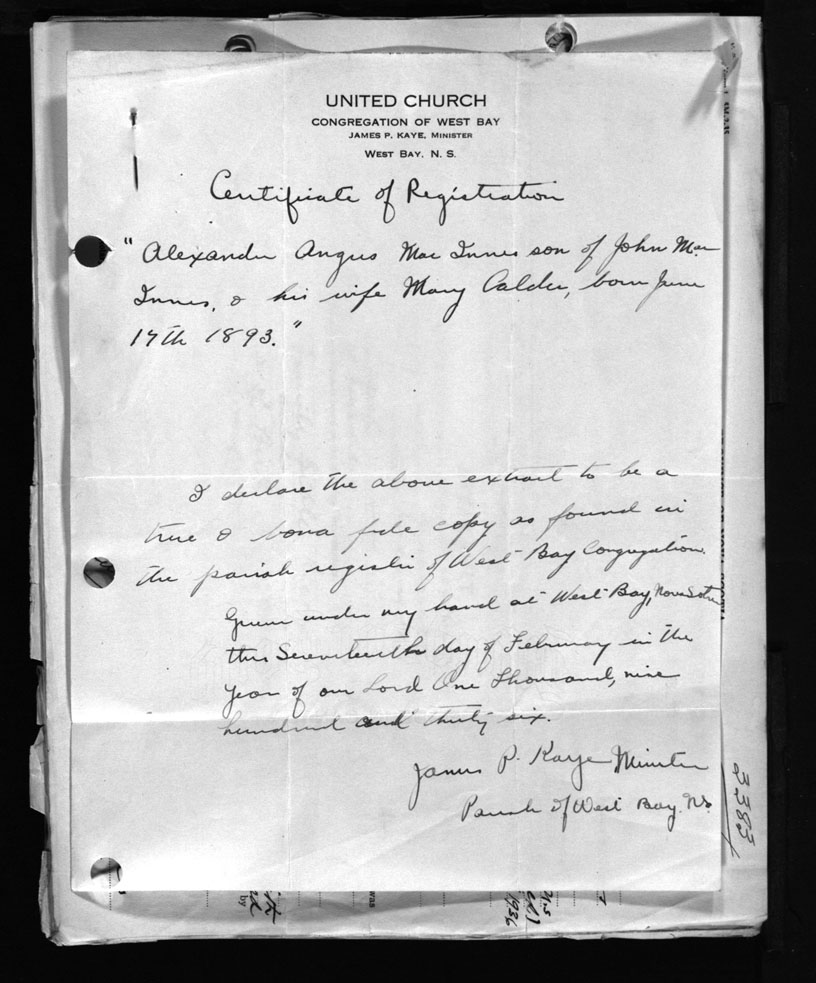 UNITED CHURCH
CONGREGATION OF WEST BAY
JAMES P. KAYE, MINISTER
WEST BAY, N. S.
Certificate of Registration
"Alexander Angus Mac Innes son of John Mac
Innes, & his wife Mary Calder, born June
17th 1893."
I declare the above extract to be a
true & bona fide copy as found in
the parish register of West Bay Congregation.
Given under my hand at West Bay, Nova Scotia
this Seventeenth day of February in the
year of our Lord One Thousand, nine
hundred and thirty six.
James P. Kaye Minister
Parish of West Bay. N.S.
3383
was
by
1936